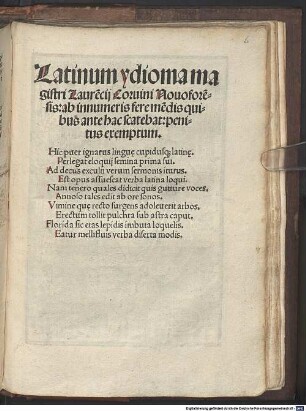 6
Latinum ydioma ma
gistri Laurẽcij Corvini Novoforẽ-
sis: ab innumeris fere mẽdis qui-
bus ante hac scatebat: peni-
tus exemptum.
Hic puer ignarus lingue cupidusq; latine.
Perlegat eloquij semina prima sui.
Ad decus exculti verum sermonis iturus.
Est opus assuescat verba latina loqui.
Nam tenero quales didicit quis gutture voces.
Annoso tales edit ab ore sonos.
Vimine quę recto surgens adoleverit arbos.
Erectum tollit pulchra sub astra caput.
Florida sic etas lepidis imbuta loquelis.
Eatur mellifluis verba diserta modis.